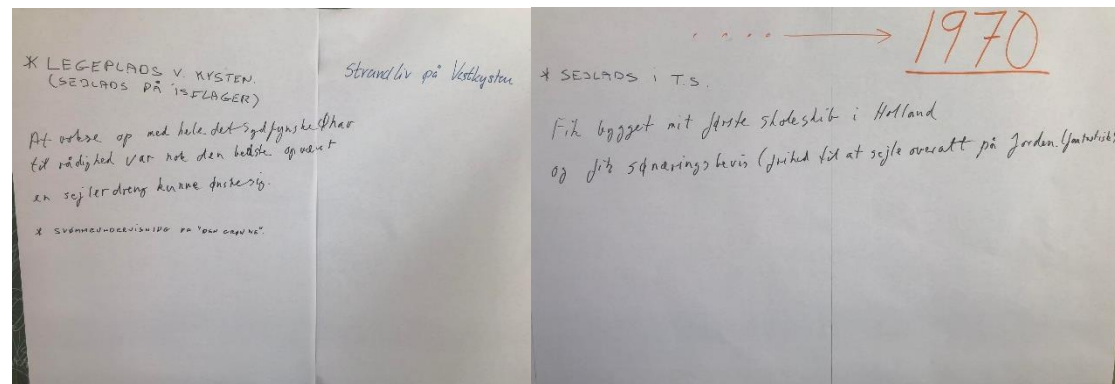 * LEGEPLADS V. KYSTEN.
(SEJLADS PÅ ISFLAGER)
At vokse op med hele det sydfynske Øhav
til rådighed var nok den bedste opvækst
en sejlerdreng kunne ønske sig.
* SVØMMEUNDERVISNING PÅ "DEN GRØNNE".
Strandliv på Vestkysten
1970
* SEJLADS i T.S.
Fik bygget mit første skoleskib i Holland
og fik sønæringsbevis (frihed til at sejle overalt på Jorden. (fantastisk)